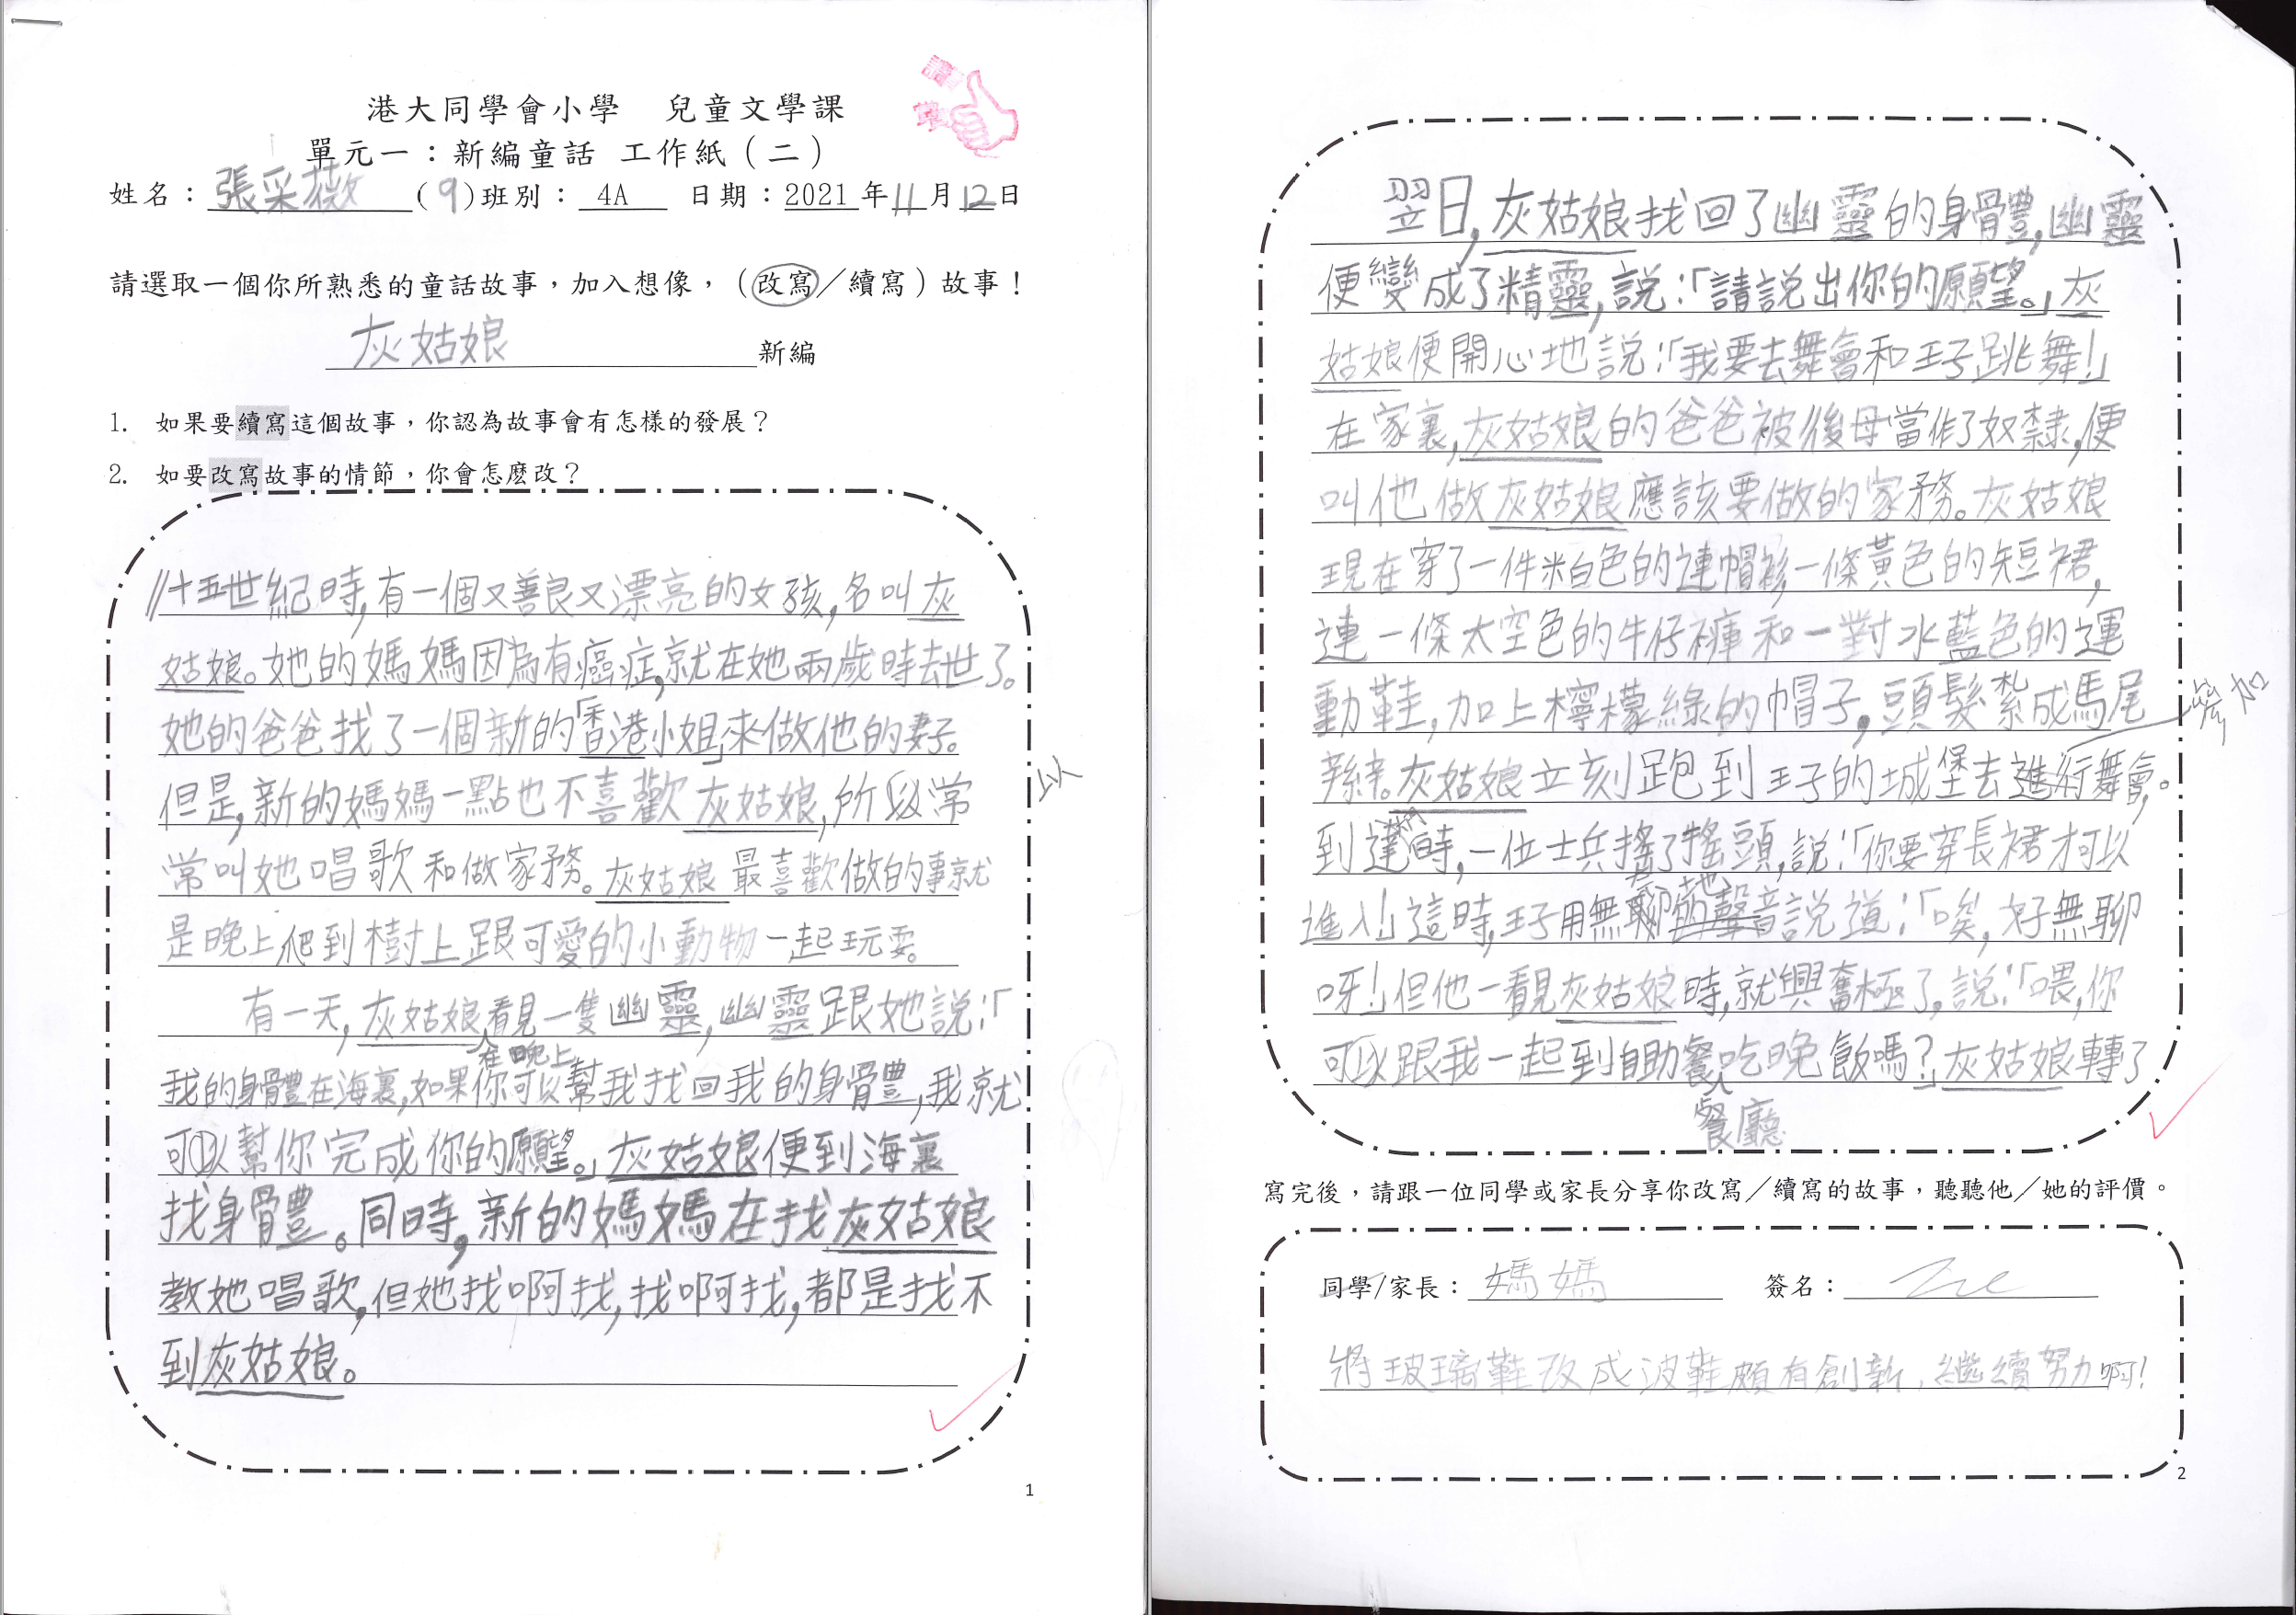 港大同學會小學　兒童文學課
單元一：新編童話 工作紙（二）
姓名：張采薇(9)班別：4A 日期：2021年11月12日
請選取一個你所熟悉的童話故事，加入想像，（改寫／續寫）故事！
灰姑娘新編
1. 如果要續寫這個故事，你認為故事會有怎樣的發展？
2. 如要改寫故事的情節，你會怎麽改？
十五世紀時,有一個又善良又漂亮的女孩,名叫灰
姑娘。她的媽媽因為有癌症,就在她兩歲時去世了。
她的爸爸找了一個新的「香港小姐」來做他的妻子。
但是,新的媽媽一點也不喜歡灰姑娘,所以常
以
常叫她唱歌和做家務。灰姑娘最喜歡做的事就
是晚上爬到樹上跟可愛的小動物一起玩耍。
有一天,灰姑娘看見一隻幽靈,幽靈跟她說:「
在晚上
我的身體在海裏,如果你可以幫我找回我的身體,我就
可以幫你完成你的願望。」灰姑娘便到海裏
找身體。同時,新的媽媽在找灰姑娘
教她唱歌,但她找啊找,找啊找,都是找不
到灰姑娘。
1
翌日,灰姑娘找回了幽靈的身體,幽靈
便變成了精靈,說:「請說出你的願望。」灰
姑娘便開心地說:「我要去舞會和王子跳舞!」
在家裏,灰姑娘的爸爸被後母當作了奴隸,便
叫他做灰姑娘應該要做的家務。灰姑娘
現在穿了一件米白色的連帽衫,一條黃色的短裙,
連一條太空色的牛仔褲和一對水藍色的運
動鞋,加上檸檬綠的帽子,頭髮紮成馬尾
參加
辮。灰姑娘立刻跑到王子的城堡去進行舞會。
到達時,一位士兵搖了搖頭,說:「你要穿長裙才可以
進入!」這時,王子用無聊的聲音說道:「唉,好無聊
地
呀!」但他一看見灰姑娘時,就興奮極了,說:「喂,你
可以跟我一起到自助餐吃晚飯嗎?」灰姑娘轉了
餐廳
寫完後，請跟一位同學或家長分享你改寫／續寫的故事，聽聽他／她的評價。
同學/家長：媽媽 簽名：
將玻璃鞋改成波鞋頗有創新,繼續努力啊!
2